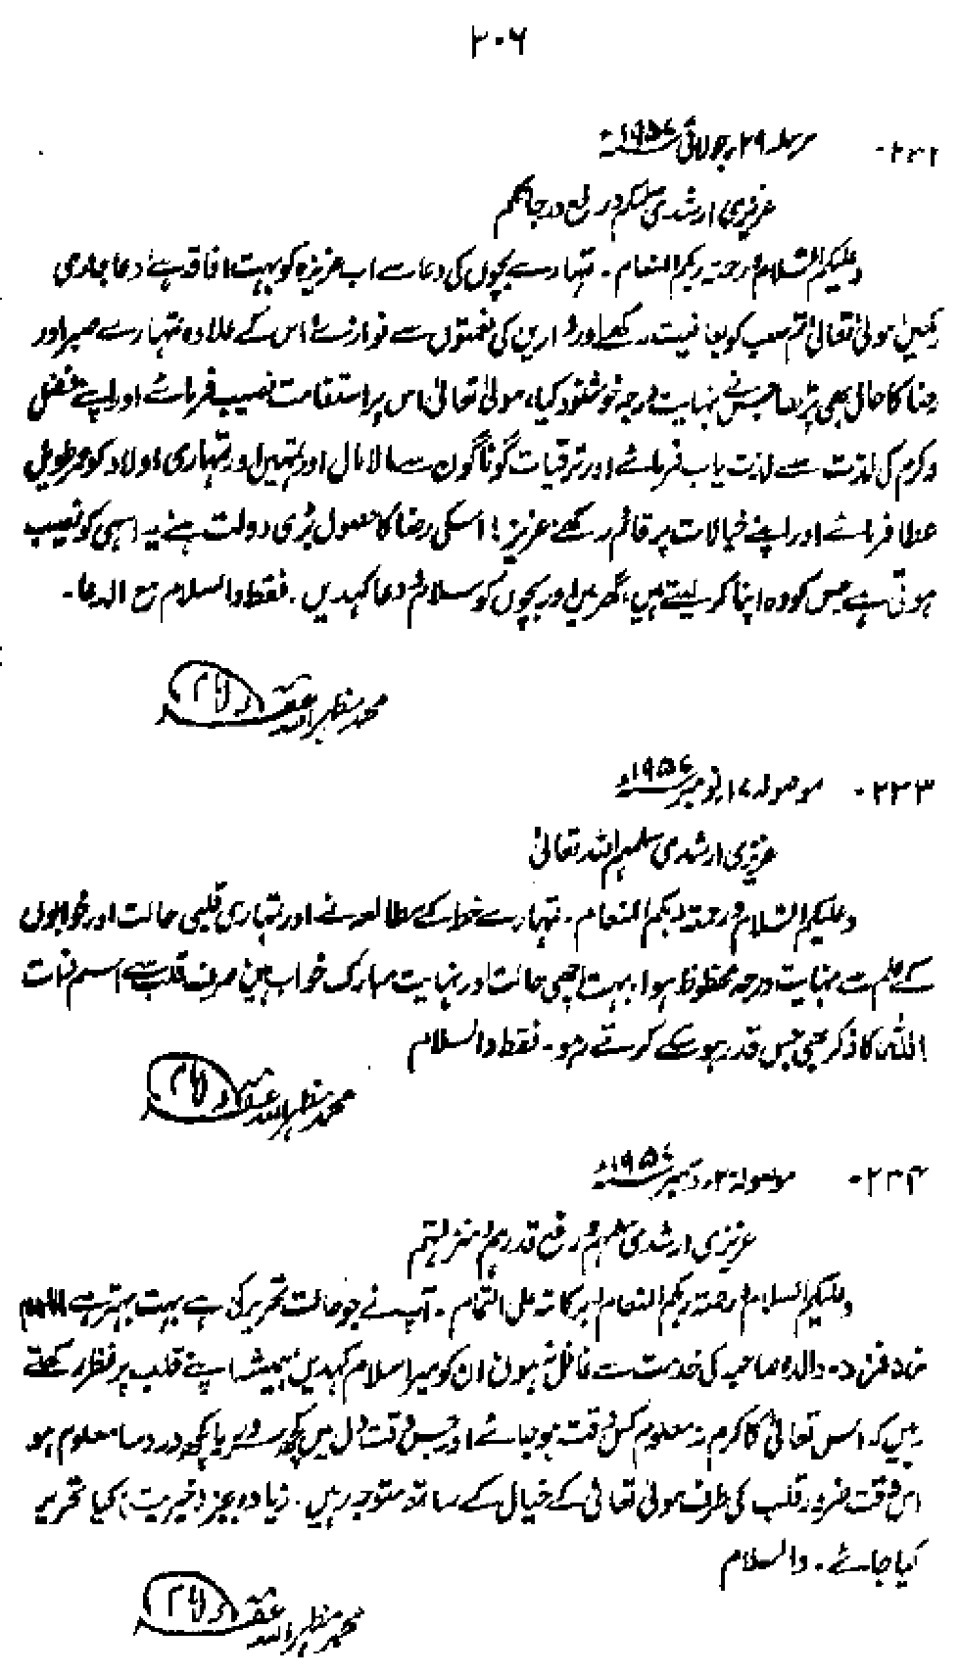 ۲۰۶
۲۳۲- مرسلہ ۲۹؍جولائی ۱۹۵۶ء
عزیزی ارشدی سلمکم و رفع درجاتکم
وعلیکم السلام ورحمۃ ربکم المنعام ۔ تمہارے بچوں کی دعا سے اب عزیزہ کو بہت افاقہ ہے دعا جاری
رکھیں مولیٰ تعالیٰ تم سب کو بعافیت رکھے اور دارین کی نعمتوں سے نوازے اس کے علاوہ تمہارے صبر اور
رضا کا حال بھی پڑھا جس نے نہایت درجہ خوشنود کیا، مولیٰ تعالیٰ اس پر استقامت نصیب فرمائے اور اپنے فضل
و کرم کی لذت سے لذت یاب فرمائے اور ترقیات گوناگون سے مالا مال اور تمہیں اور تمہاری اولاد کو عمر طویل
عطا فرمائے اور اپنے خیالات پر قائم رکھے عزیز! اسکی رضا کا حصول بڑی دولت ہے یہ اسی کو نصیب
ہوتی ہے جس کو وہ اپنا کر لیتے ہیں، گھر میں اور بچوں کو سلام و دعا کہدیں ۔ فقط والسلام مع الدعا ۔
محمد مظہر اللہ غفرلہ
۲۳۳- موصولہ ۱۷؍نومبر ۱۹۵۶ء
عزیزی ارشدی سلمہم اللہ تعالیٰ
وعلیکم السلام ورحمۃ ربکم المنعام ۔ تمہارے خط کے مطالعہ نے اور تمہاری قلبی حالت اور خوابوں
کے علم سے نہایت درجہ محظوظ ہوا، بہت اچھی حالت اور نہایت مبارک خواب ہیں صرف قلب سے اسم ذات
اللہ کا ذکر بھی جس قدر ہو سکے کرتے رہو ۔ فقط والسلام
محمد مظہر اللہ غفرلہ
۲۳۴- موصولہ ۲؍دسمبر ۱۹۵۶ء
عزیزی ارشدی سلمہم و رفع قدرہم منزلتہم
وعلیکم السلام ورحمۃ ربکم المنعام برکاتہ علی التمام ۔ آپ نے جو حالت تحریر کی ہے بہت بہتر ہے اللھم
زد فزد ۔ والدہ صاحبہ کی خدمت سے غافل نہ ہوں ان کو میرا سلام کہدیں ہمیشہ اپنے قلب پر نظر رکھتے
رہیں کہ اس تعالیٰ کا کرم نہ معلوم کس وقت ہو جائے اور جس وقت دل میں کچھ سرور یا کچھ درد سا معلوم ہو
اس وقت ضرور قلب کی طرف مولیٰ تعالیٰ کے خیال کے ساتھ متوجہ رہیں ۔ زیادہ بجز (خیریت) کیا تحریر
کیا جائے ۔ والسلام
محمد مظہر اللہ غفرلہ